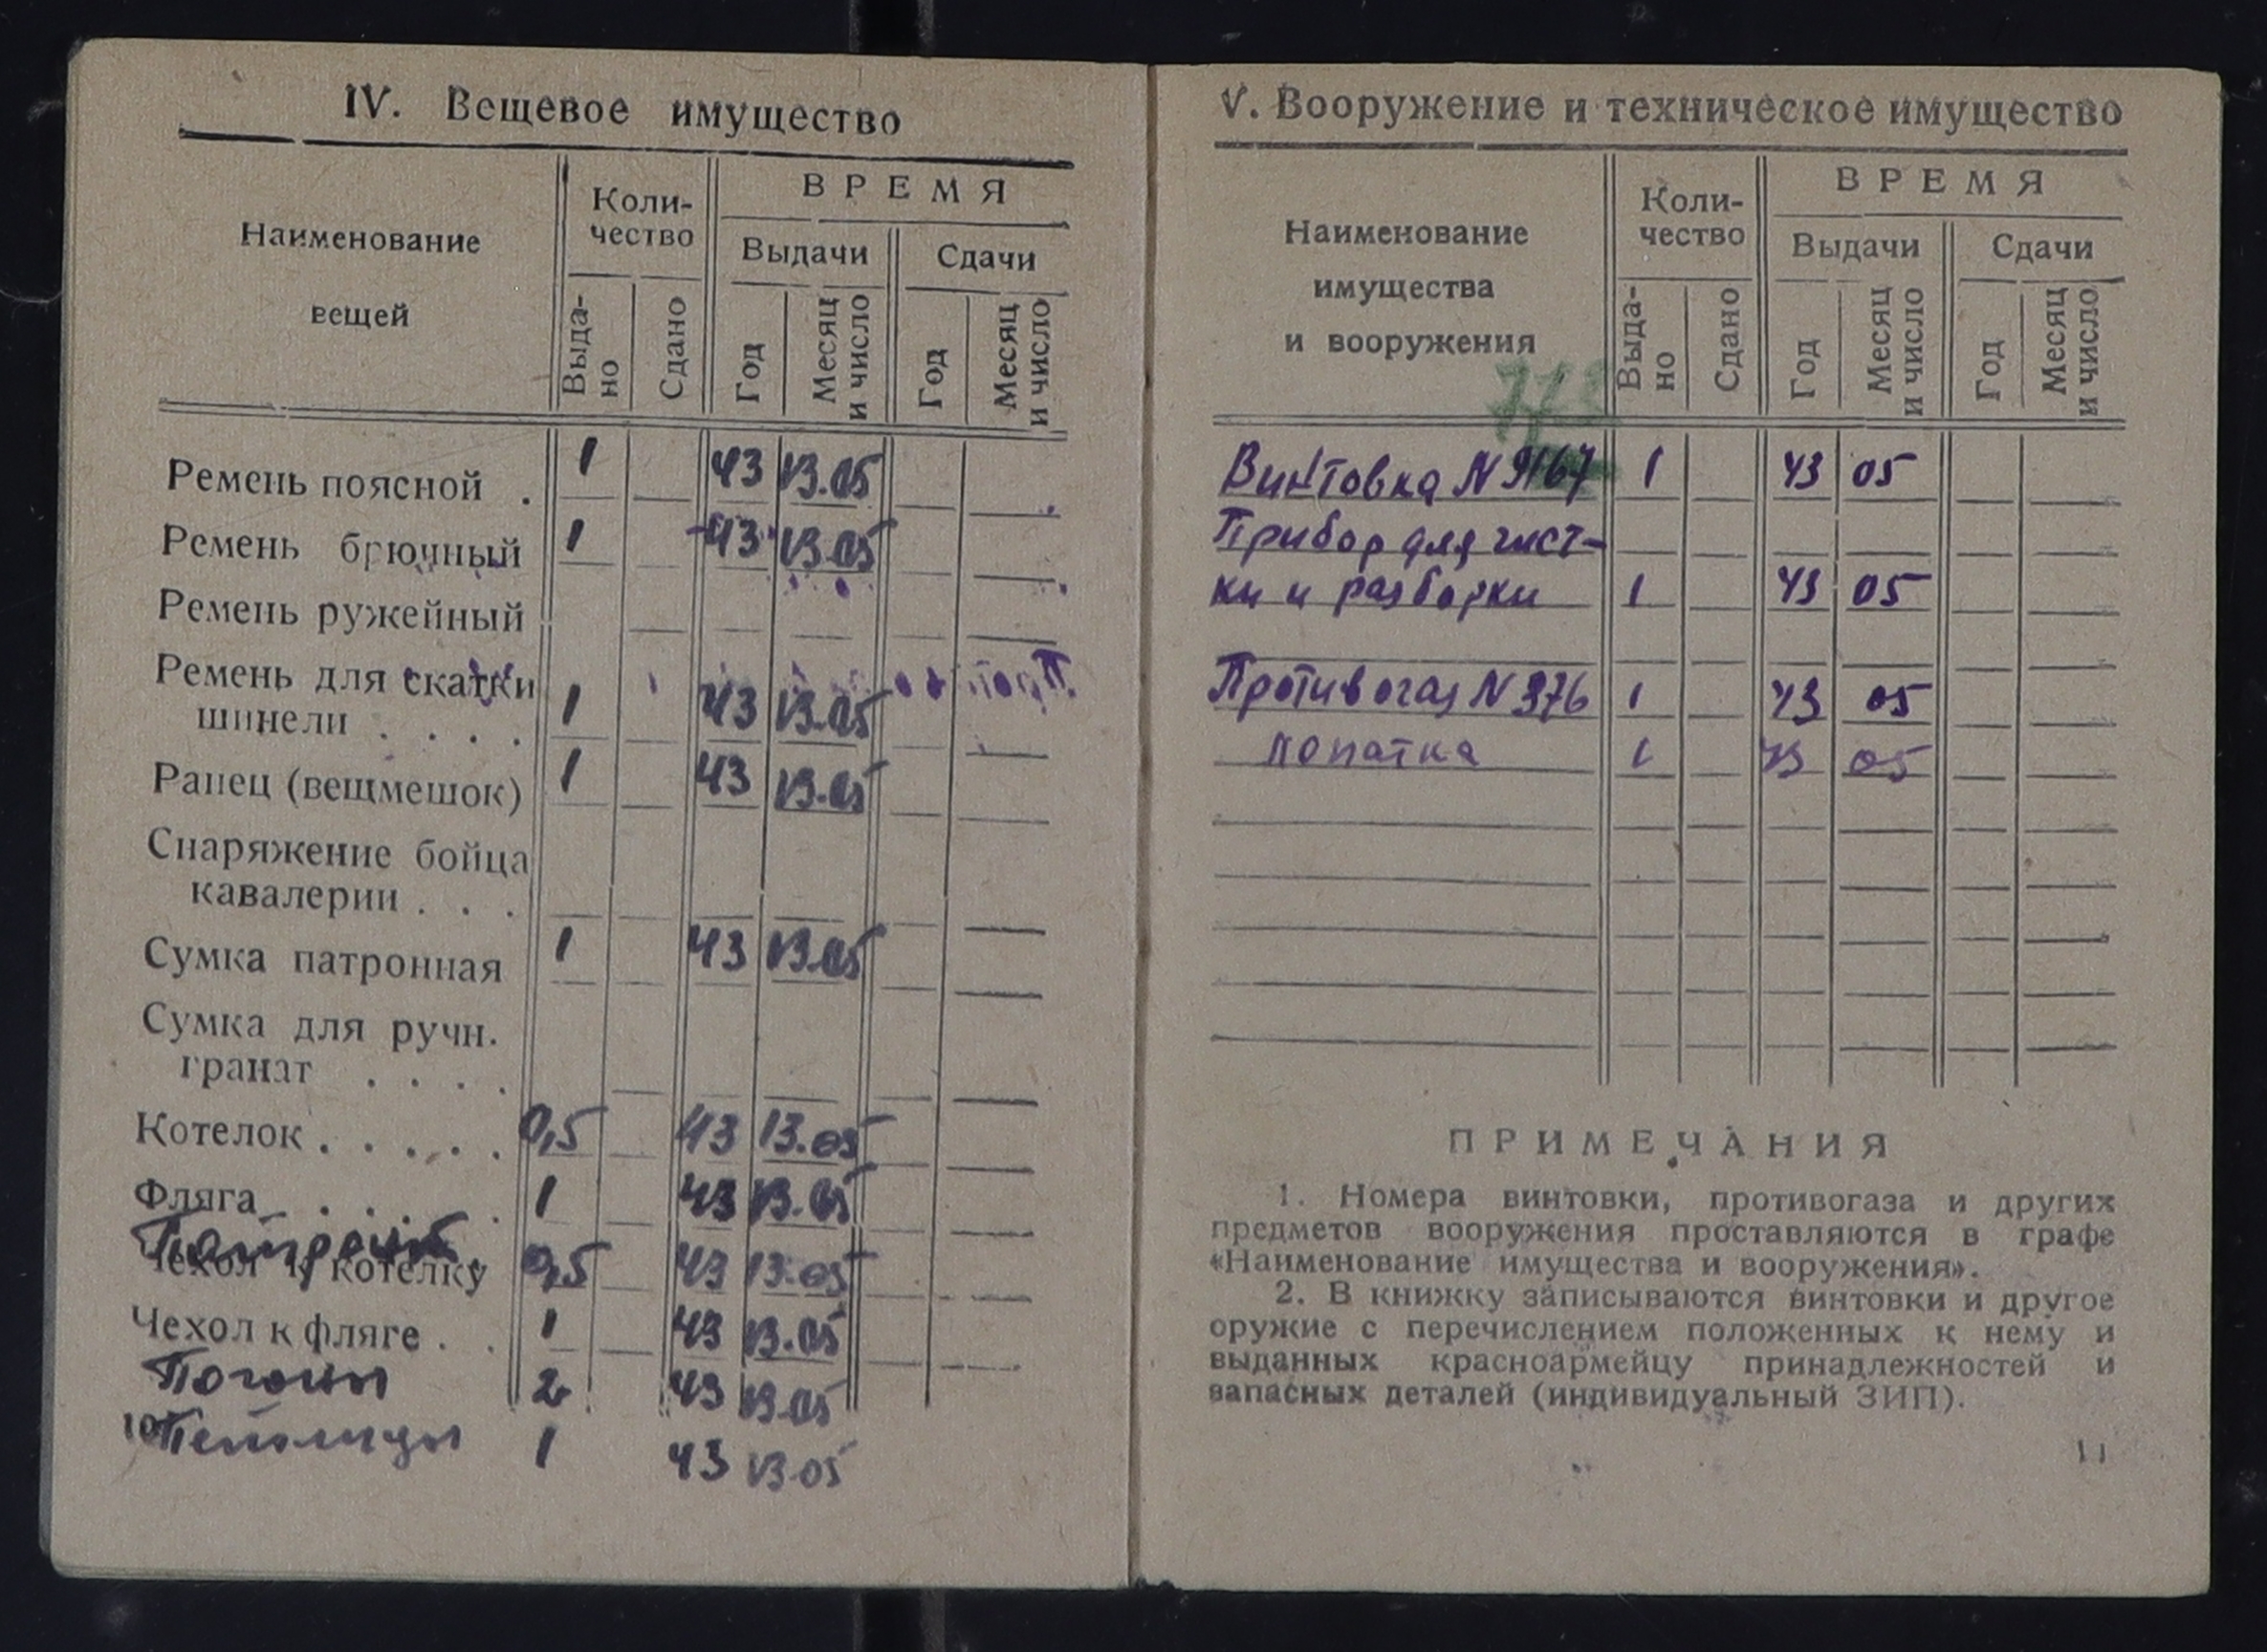 IV. Вещевое имущество
Наименование вещей
Коли-
чество
ВРЕМЯ
Выдачи
Сдачи
Выда-
но
Сдано
Год
Месяц
и число
Год
Месяц
и число
Ремень поясной . 1 43 13.05
Ремень брючный 1 43 13.05
Ремень ружейный
Ремень для скатки
шинели . . . . 1 43 13.05
Ранец (вещмешок) 1 43 13.05
Снаряжение бойца
кавалерии . . .
Сумка патронная 1 43 13.05
Сумка для ручн.
гранат . . . .
Котелок . . . . . 0,5 43 13.05
Фляга . . . . . 1 43 13.05
Чехол к котелку 0,5 43 13.05
Чехол к фляге . . 1 43 13.05
Погоны 2 43 13.05
10
Петлицы 1 43 13.05
V. Вооружение и техническое имущество
Наименование
имущества
и вооружения
Коли-
чество
ВРЕМЯ
Выдачи
Сдачи
Выда-
но
Сдано
Год
Месяц
и число
Год
Месяц
и число
Винтовка N 9167 1 43 05
Прибор для чист-
ки и разборки 1 43 05
Противогаз N 376 1 43 05
Лопатка 1 43 05
ПРИМЕЧАНИЯ
1. Номера винтовки, противогаза и других
предметов вооружения проставляются в графе
«Наименование имущества и вооружения».
2. В книжку записываются винтовки и другое
оружие с перечислением положенных к нему и
выданных красноармейцу принадлежностей и
запасных деталей (индивидуальный ЗИП).
11